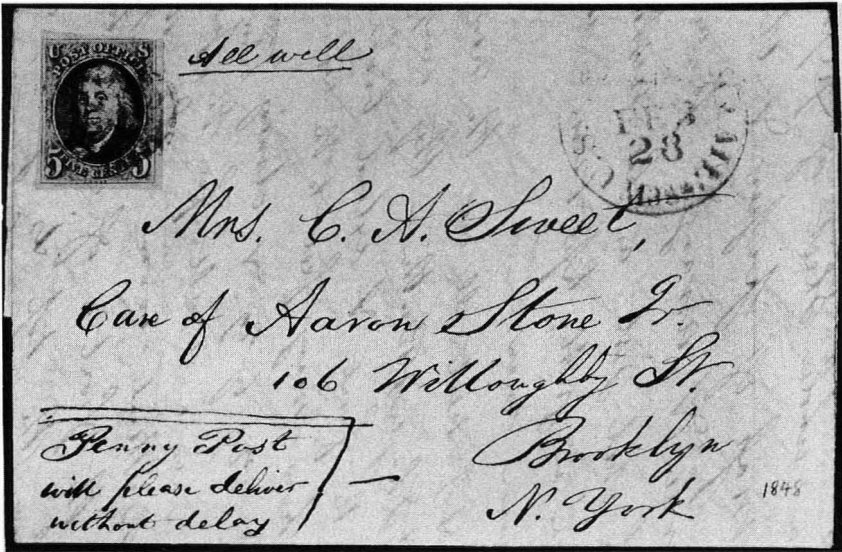 U S
POST OFFICE
5 FIVE CENTS 5
All well
FEB
28
Mrs. C. A. Sweet,
Care of Aaron Stone Jr.
106 Willoughby St.
Brooklyn
N. York
Penny Post
will please deliver
without delay
1848